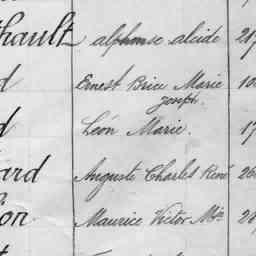 thault alphonse alcide 217
d Ernest Brice Marie 10
joseph.
d Léon Marie. 17
ard Auguste Charles René 26
on Maurice Victor Mie 28